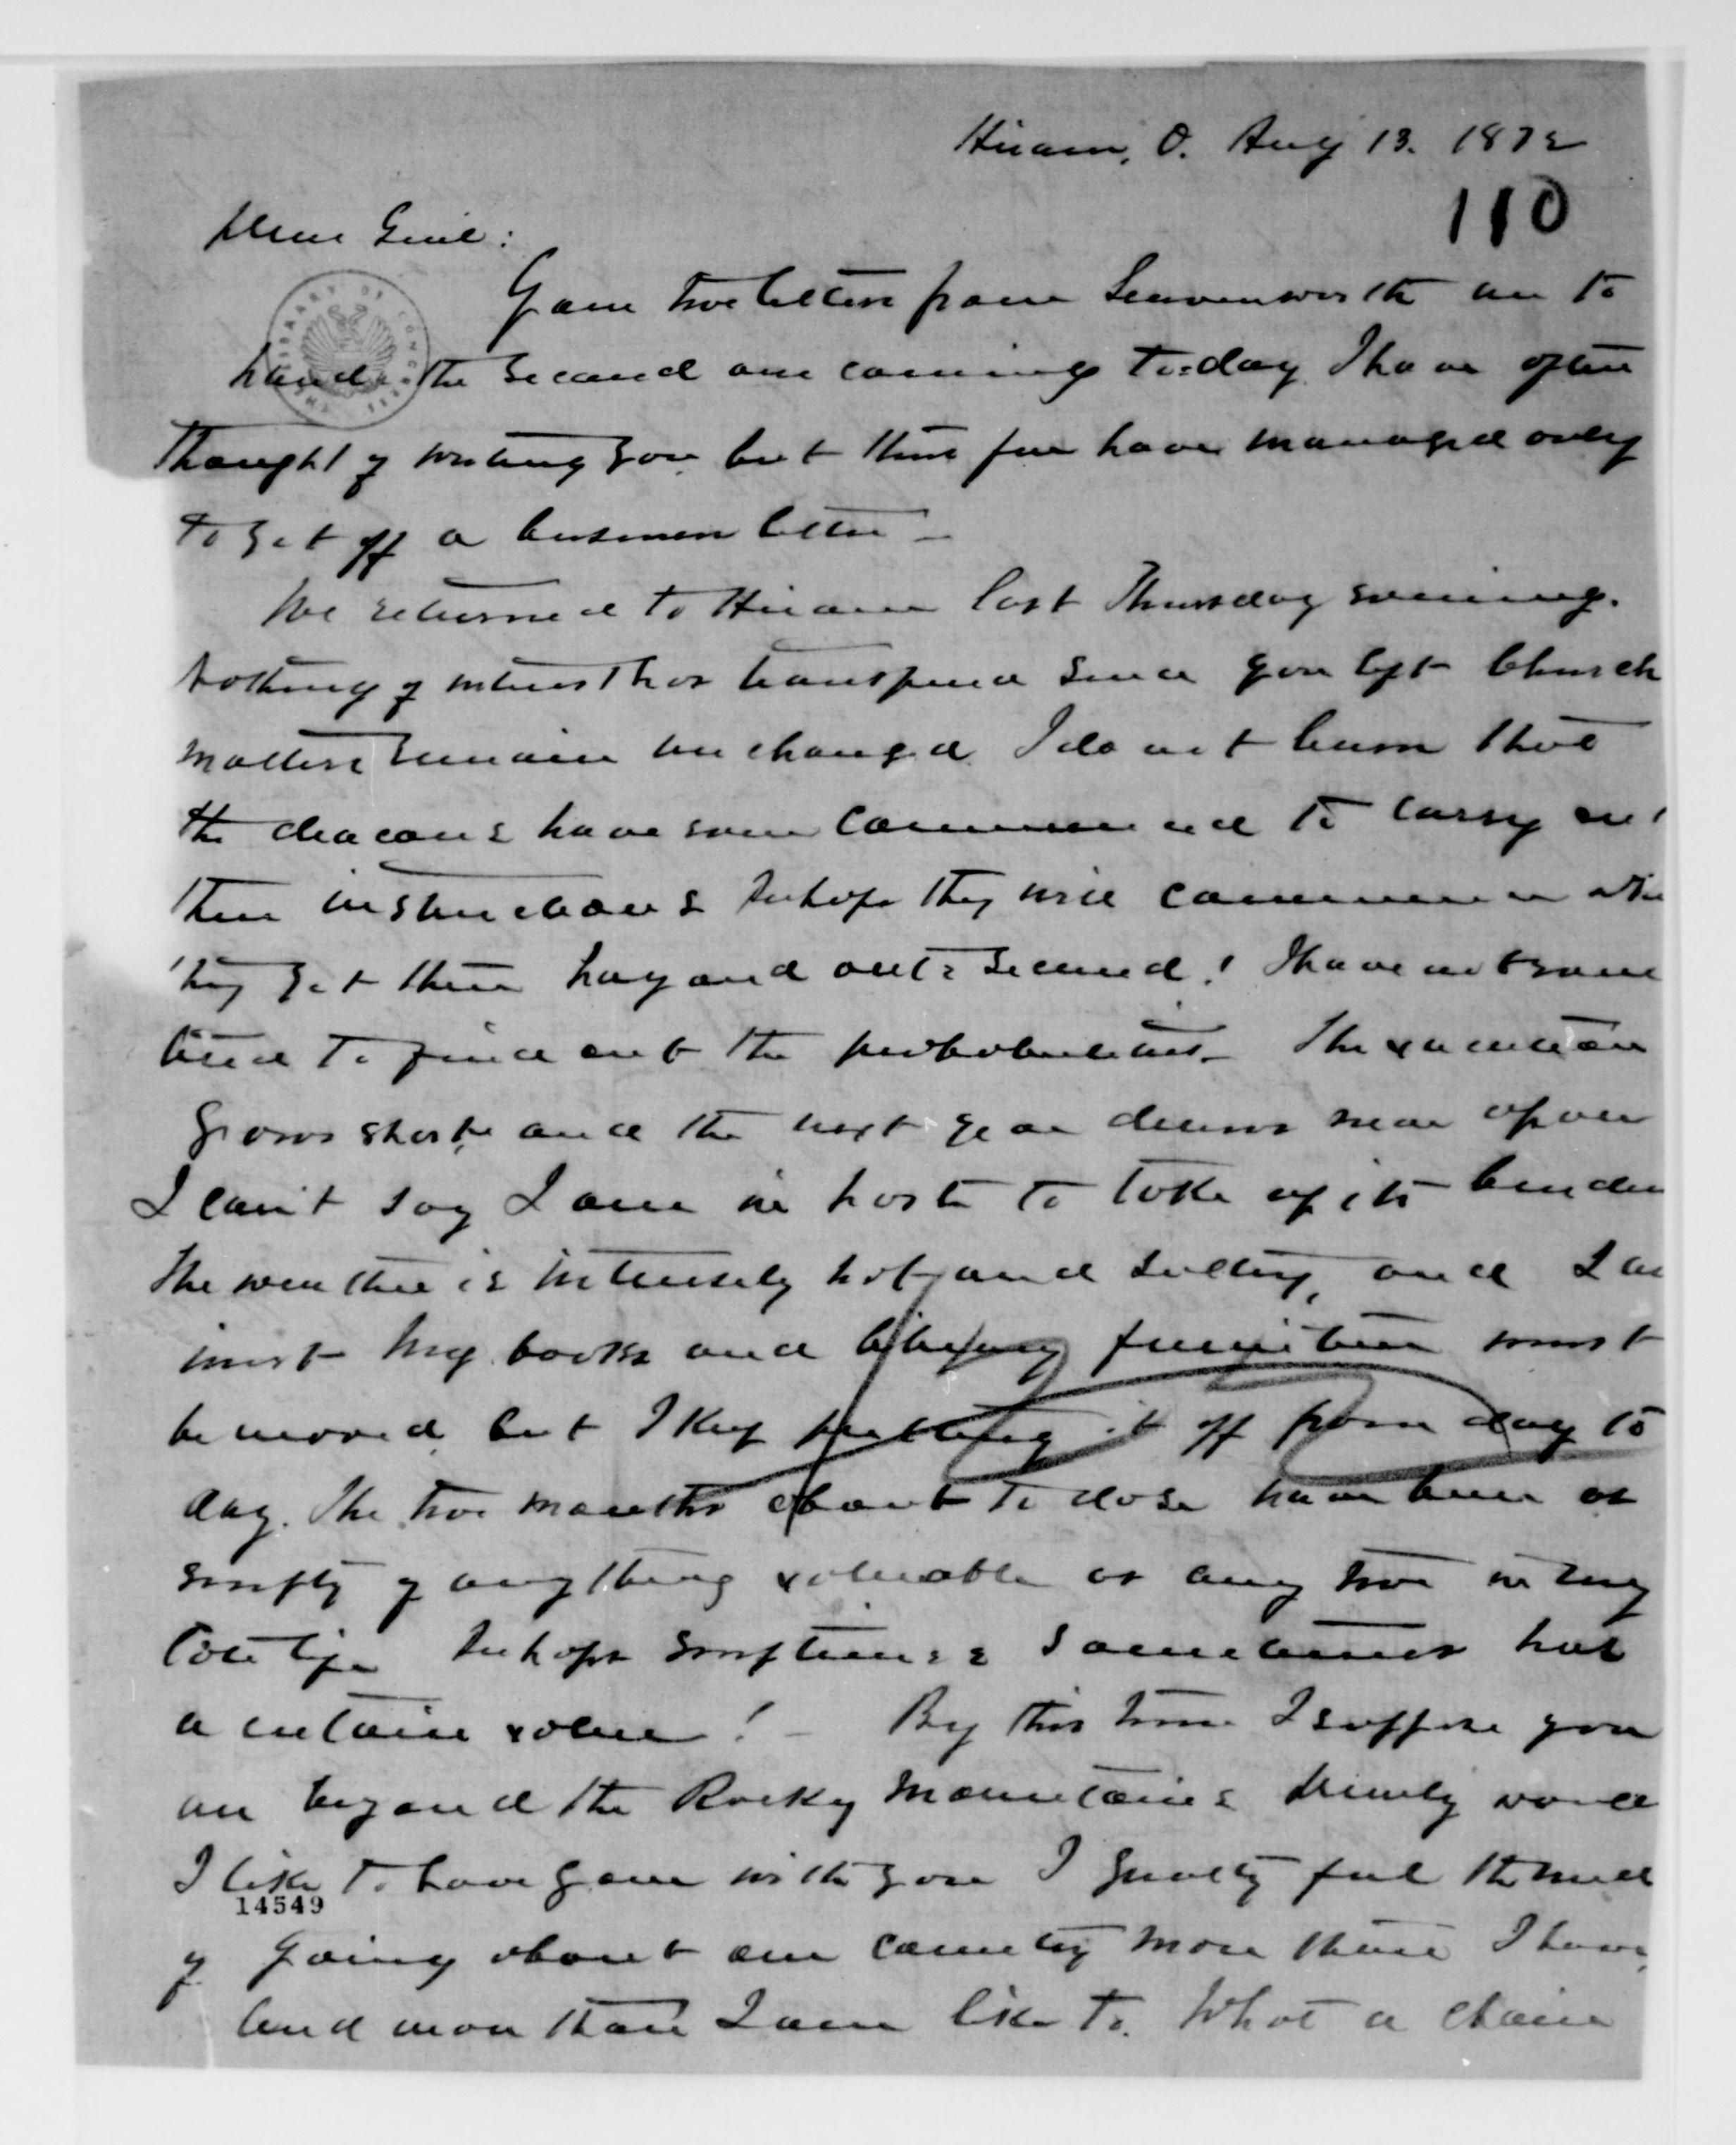 Hiram, O. Aug 13. 1872
110
Dear Genl:
Your two letters from Leavenworth are to
hand, the second one coming to-day. I have often
thought of writing you but thus far have managed only
to get off a business letter –
We returned to Hiram last Thursday evening.
Nothing of interest has transpired since you left. Church
matters remain unchanged. I do not learn that
the deacons have even commenced to carry out
their instructions. Perhaps they will commence when
they get their hay and oats secured! I have not even
tried to find out the probabilities. The vacation
grows short, and the next year draws near apace
I can't say I am in haste to take up its burdens
The weather is intensely hot and sultry, and I am
inert. My books and library furniture must
be moved, but I keep putting it off from day to
day. The two months about to close have been as
empty of anything valuable as any two in my
life. Perhaps emptiness sometimes has
a certain value! – By this time I suppose you
are beyond the Rocky Mountains. Dearly would
I like to have gone with you. I greatly feel the need
14549
of going about our country more than I have,
and more than I am like to. What a chain
THE LIBRARY OF CONGRESS